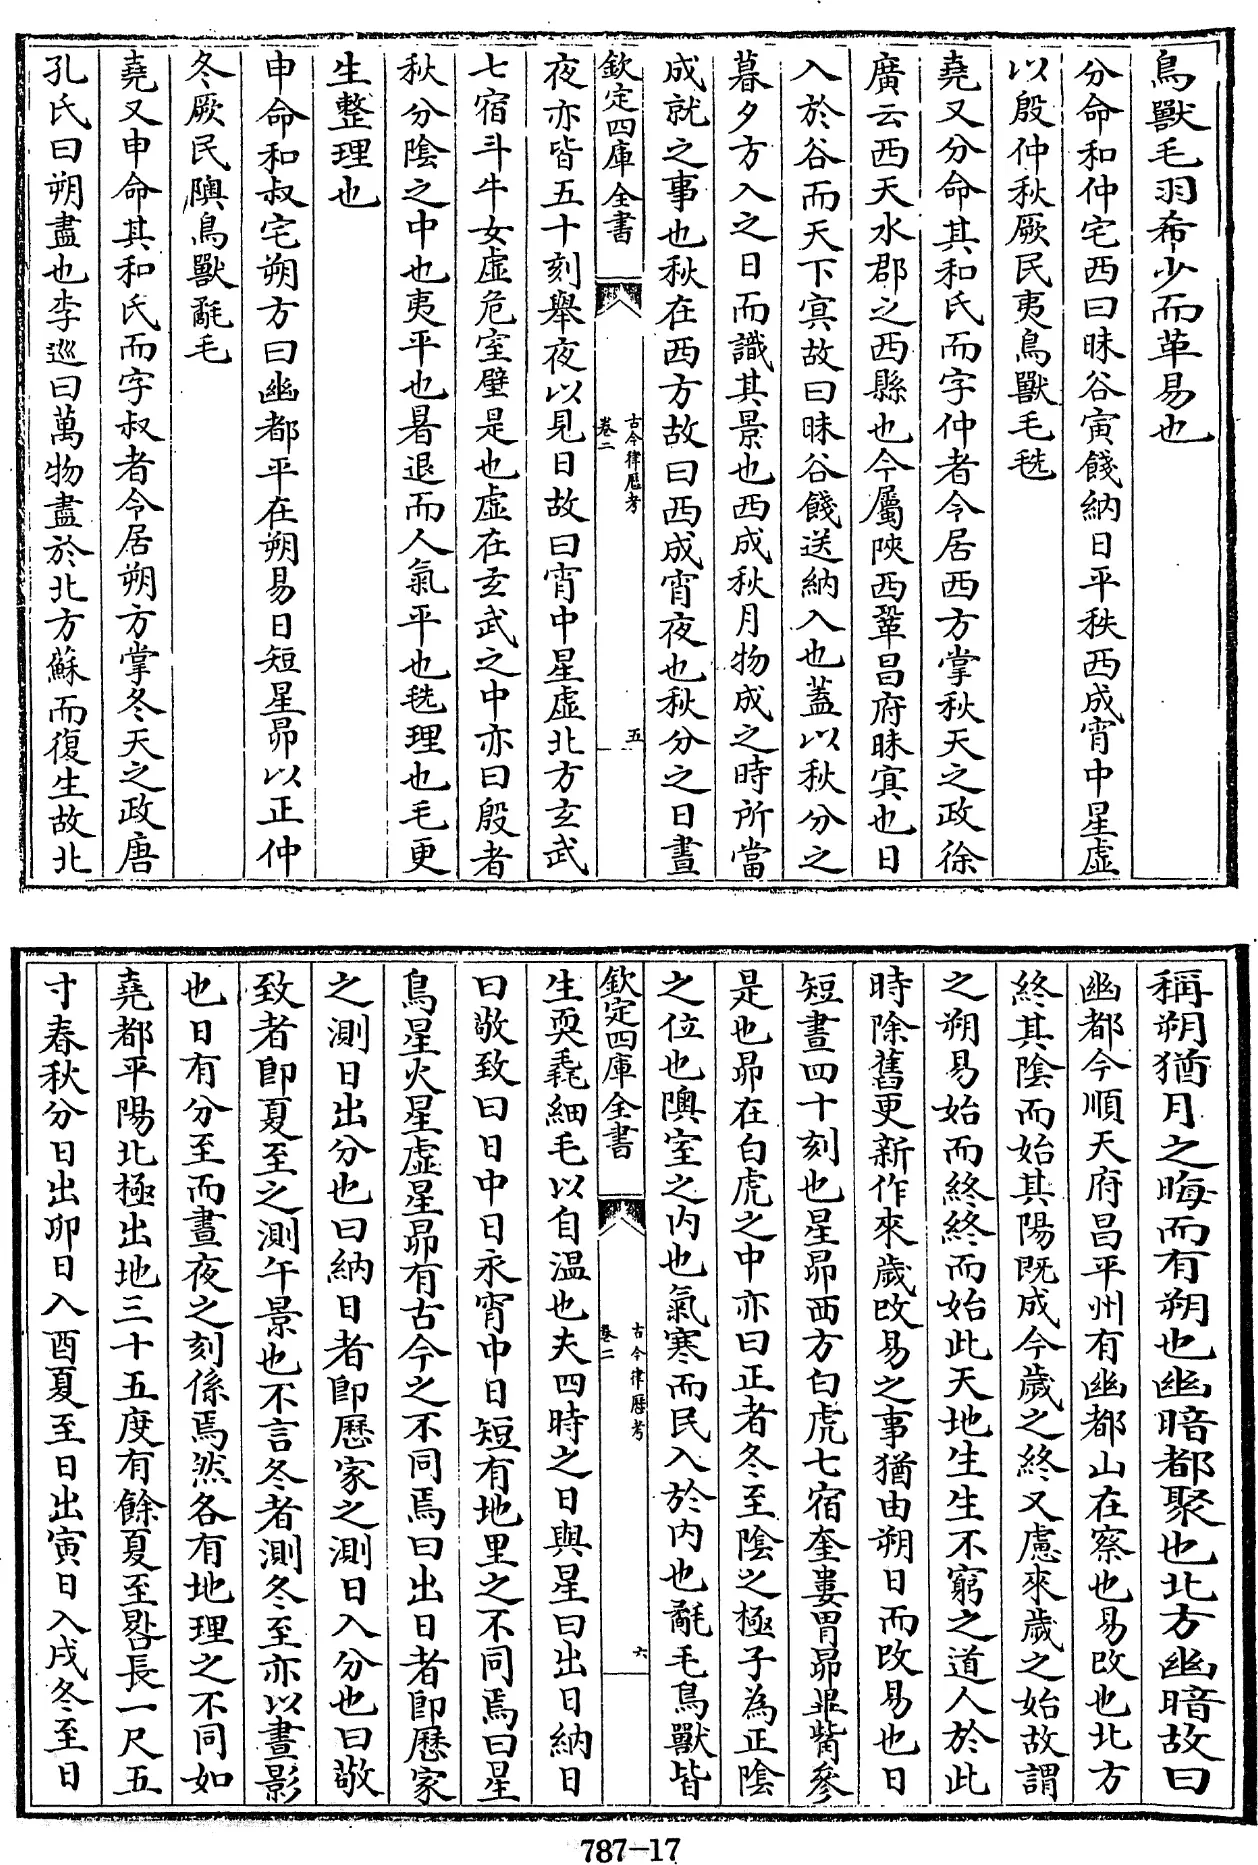 鳥獸毛羽希少而革易也
分命和仲宅西曰昧谷寅餞納日平秩西成宵中星虛
以殷仲秋厥民夷鳥獸毛毨
堯又分命其和氏而字仲者令居西方掌秋天之政徐
廣云西天水郡之西縣也今屬陜西鞏昌府昧㝠也日
入於谷而天下㝠故曰昧谷餞送納入也蓋以秋分之
暮夕方入之日而識其景也西成秋月物成之時所當
成就之事也秋在西方故曰西成宵夜也秋分之日晝
欽定四庫全書
古今律厯考
卷二
五
夜亦皆五十刻舉夜以見日故曰宵中星虛北方玄武
七宿斗牛女虛危室壁是也虛在玄武之中亦曰殷者
秋分陰之中也夷平也暑退而人氣平也毨理也毛更
生整理也
申命和叔宅朔方曰幽都平在朔易日短星昴以正仲
冬厥民隩鳥獸氄毛
堯又申命其和氏而字叔者令居朔方掌冬天之政唐
孔氏曰朔盡也李巡曰萬物盡於北方蘇而復生故北
稱朔猶月之晦而有朔也幽暗都聚也北方幽暗故曰
幽都今順天府昌平州有幽都山在察也易改也北方
終其陰而始其陽既成今歲之終又慮來歲之始故謂
之朔易始而終終而始此天地生生不窮之道人於此
時除舊更新作來歲改易之事猶由朔日而改易也日
短晝四十刻也星昴西方白虎七宿奎婁胃昴畢觜參
是也昴在白虎之中亦曰正者冬至陰之極子為正陰
之位也隩室之內也氣寒而民入於內也氄毛鳥獸皆
欽定四庫全書
古今律厯考
卷二
六
生耎毳細毛以自溫也夫四時之日與星曰出日納日
曰敬致曰日中日永宵中日短有地里之不同焉曰星
鳥星火星虛星昴有古今之不同焉曰出日者即厯家
之測日出分也曰納日者即厯家之測日入分也曰敬
致者即夏至之測午景也不言冬者測冬至亦以晝影
也日有分至而晝夜之刻係焉然各有地理之不同如
堯都平陽北極出地三十五度有餘夏至晷長一尺五
寸春秋分日出卯日入酉夏至日出寅日入戌冬至日
787-17